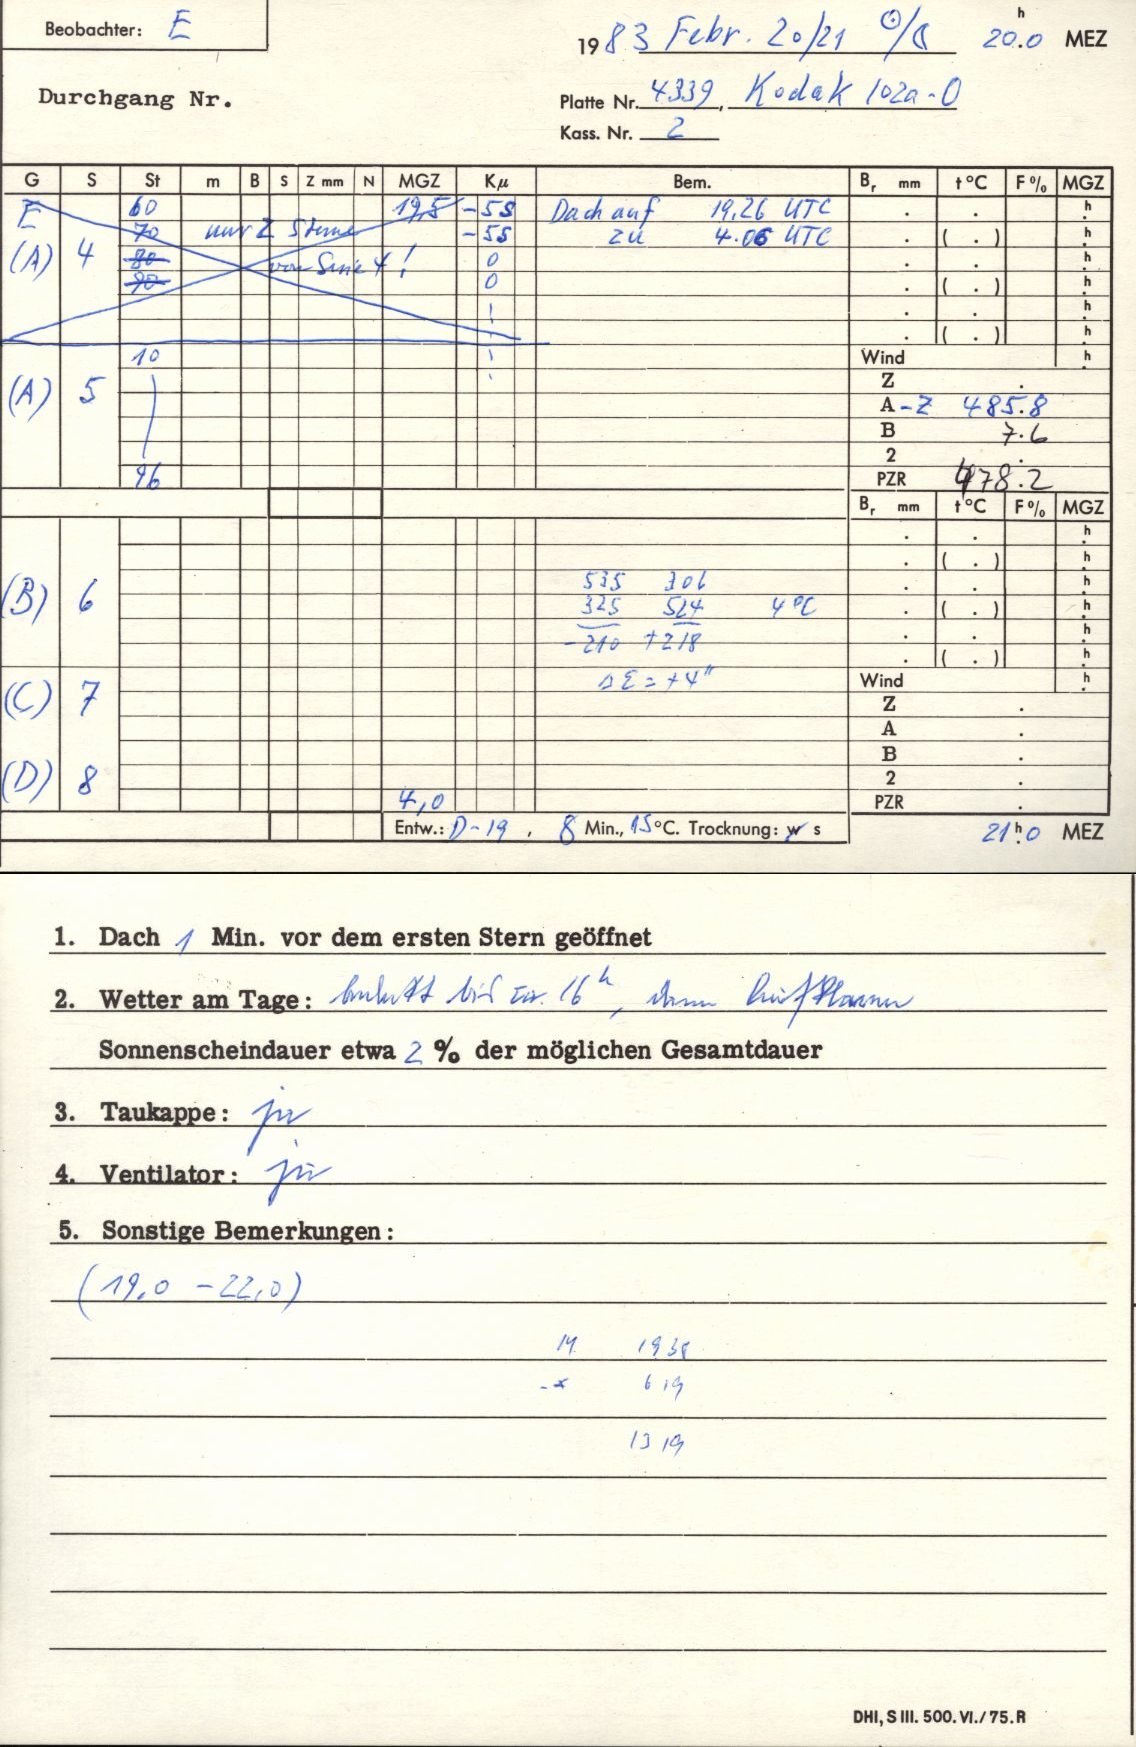 Beobachter: E
1983 Febr. 20/21 ☉/☾ 20.0 h MEZ
Durchgang Nr.
Platte Nr. 4339, Kodak 102a-O
Kass. Nr. 2
G S St m B S Z mm N MGZ Kμ Bem. Br mm t°C F% MGZ
E 60 19,5 -55 Dach auf 19.26 UTC . . h
70 nur 2 Sterne -55 zu 4.06 UTC . ( . ) h
(A) 4 80 von Serie 4! 0 . . h
90 0 . ( . ) h
. . h
. ( . ) h
10 Wind h
(A) 5 Z .
A-Z 485.8
B 7.6
2 .
96 PZR 478.2
Br mm t°C F% MGZ
. . h
. ( . ) h
535 306 . . h
(B) 6 325 524 4°C . ( . ) h
-210 +218 . . h
. ( . ) h
(C) 7 ΔE = +4" Wind h
Z .
A .
B .
(D) 8 2 .
4,0 PZR .
Entw.: D-19, 8 Min., 15°C. Trocknung: w s 21h.0 MEZ
1. Dach 1 Min. vor dem ersten Stern geöffnet
2. Wetter am Tage: bedeckt bis ca. 16h, dann
Sonnenscheindauer etwa 2 % der möglichen Gesamtdauer
3. Taukappe: ja
4. Ventilator: ja
5. Sonstige Bemerkungen:
(19,0 - 22,0)
14 1938
-x 619
1319
DHI, S III. 500. VI./75. R